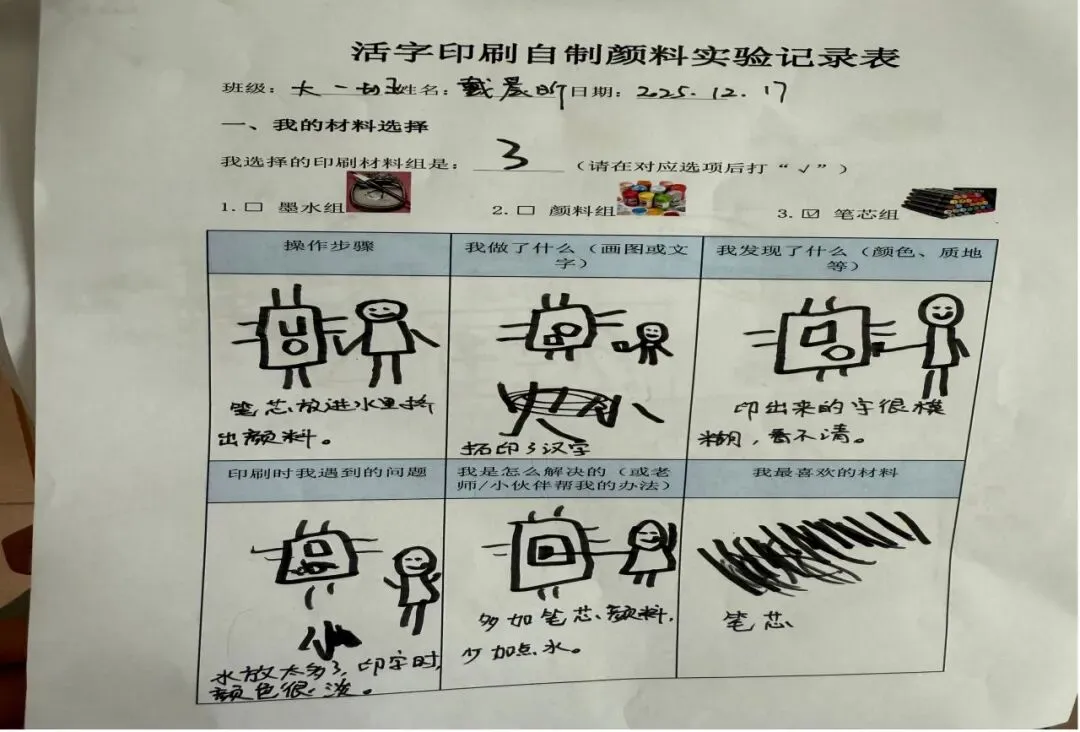 活字印刷自制颜料实验记录表
班级：大一班姓名：戴晨昕日期：2025.12.17
一、我的材料选择
我选择的印刷材料组是：3（请在对应选项后打“√”）
1.☐ 墨水组 2.☐ 颜料组 3.☑ 笔芯组
操作步骤
我做了什么（画图或文
字）
我发现了什么（颜色、质地
等）
笔芯放进水里挤
出颜料。
拓印了汉字
印出来的字很模
糊，看不清。
印刷时我遇到的问题
我是怎么解决的（或老
师/小伙伴帮我的办法）
我最喜欢的材料
水放太多了，印字时，
颜色很淡。
多加笔芯颜料，
少加点水。
笔芯